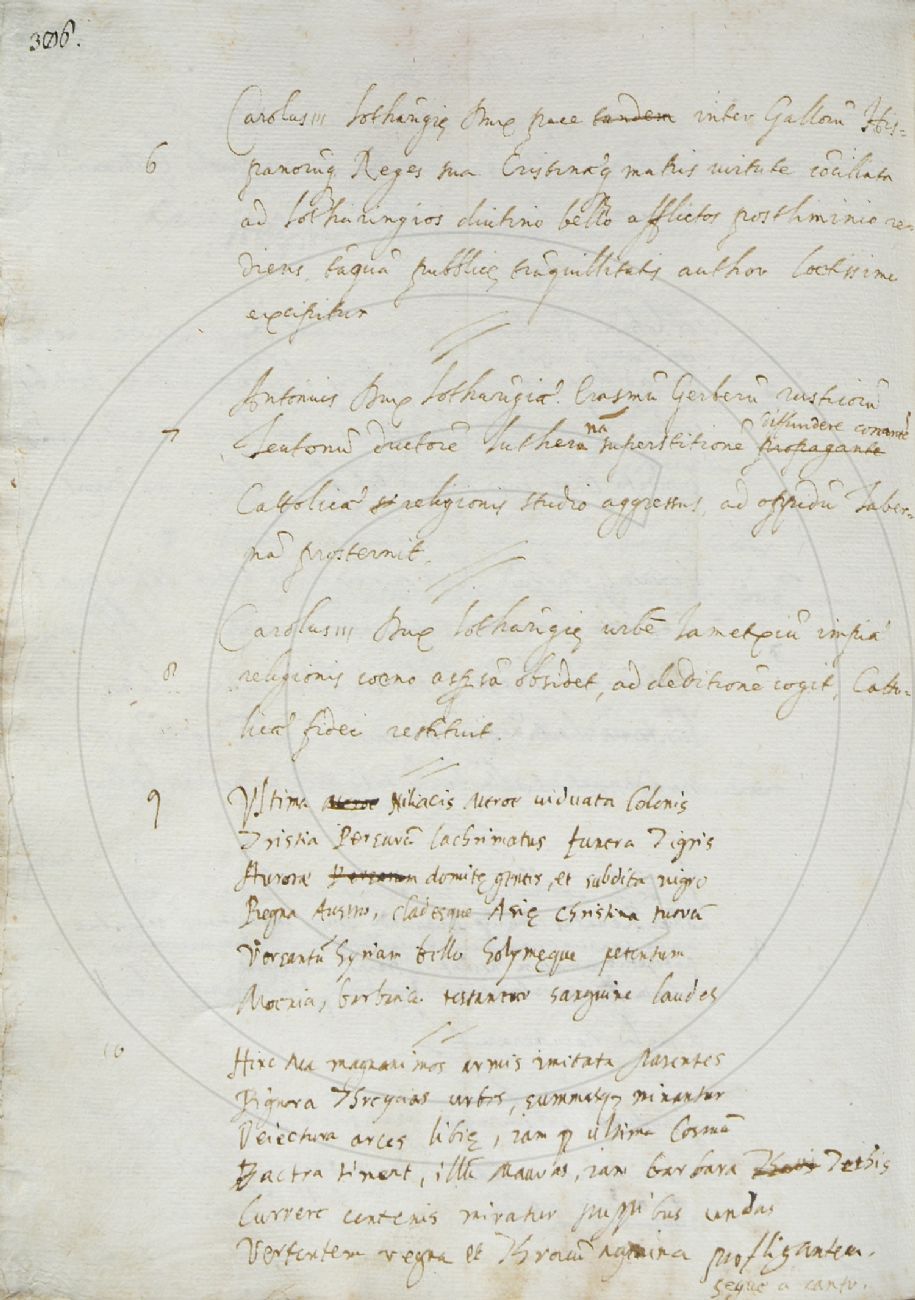 306.
Carolus III Lothar̃gię Dux pace tandem inter Gallorũ His=
6 panorũq Reges sua Cristinaq̃ matris virtute cõciliata
ad Lotharingios diutino bello afflictos postliminio re
diens tãquã pubblicę trãquillitatis author loetissime
excipitur
Antonius Dux Lothar̃gię Erasmũ Gerberũ rusticorũ
diffundere conantẽ
7 Teutonũ ductorẽ Lutheranã superstitionẽ propagante
Cattolicæ religionis studio aggressus, ad oppidũ Taber=
nã prosternit.
Carolus III Dux Lothar̃gię urbẽ Iametxiũ impiæ
8 religionis coeno aspersã obsidet, ad deditionẽ cogit, Catto=
licæ fidei restituit.
9 Ultima Meroe Niliacis Meroe viduata Colonis
Tristia Persarũ lachrimatus funera Tigris
Auroræ domitę gentes, et subdita nigro
Regna Austro, cladesque Asię Christina tuorũ
Versantũ Syriam bello Solymęque petentum
Moenia, barbarica testantur sanguine laudes
10 Hinc tua magnanimos armis imitata Parentes
Pignora Threycias urbes, summasq minantur
Veiectura arces libię, iam ultima Cosmũ
Bactra timent, illũ Maurus, iam barbara Tethis
Currere centenis miratur puppibus undas
Vertentem regna et Thracũ agmina profligantem.
segue a canto.